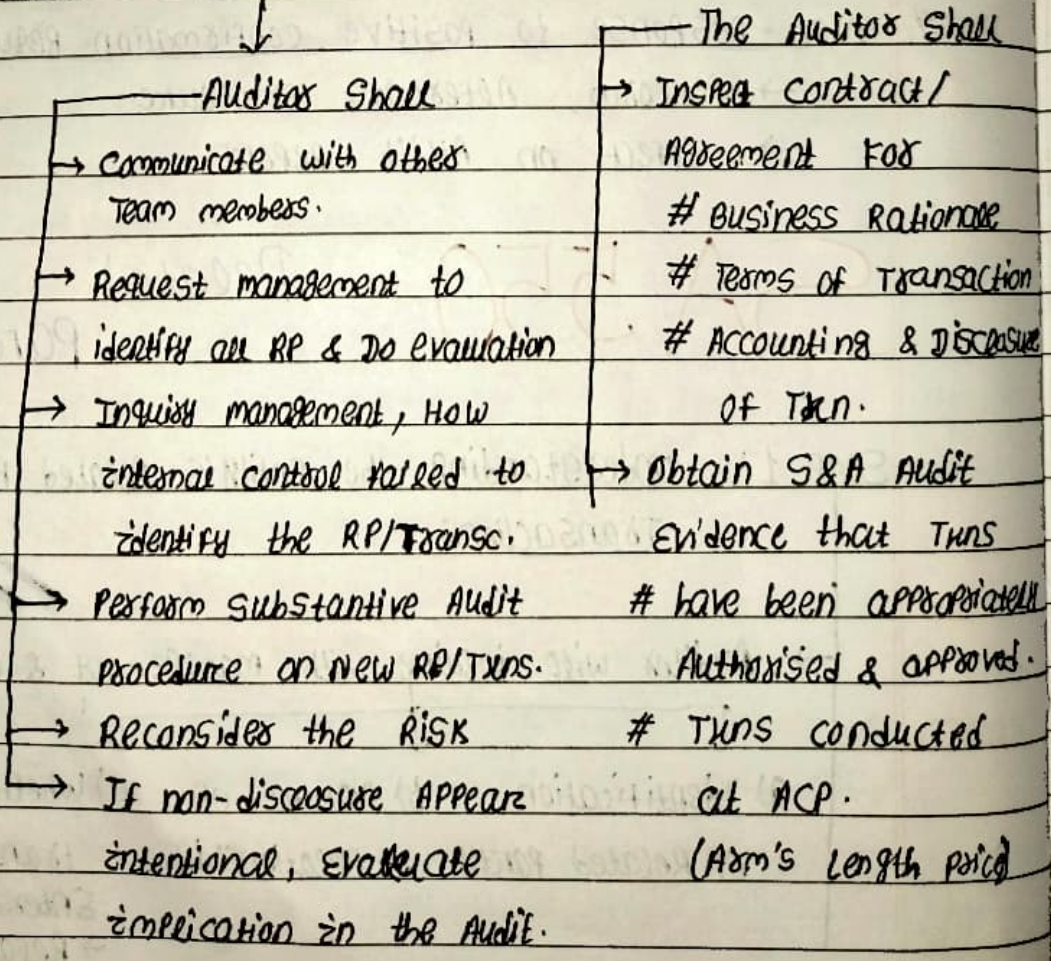 Auditor Shall
→ Communicate with other
Team members.
→ Request management to
identify all RP & Do evaluation
→ Inquiry management, How
internal control failed to
identify the RP/Transc.
→ Perform Substantive Audit
procedure on New RP/Txns.
→ Reconsider the Risk
→ If non-disclosure Appear
intentional, Evaluate
implication in the Audit.
The Auditor Shall
→ Inspect contract/
Agreement For
# Business Rationale
# Terms of Transaction
# Accounting & Disclosure
of Txn.
→ Obtain S&A Audit
Evidence that Txns
# have been appropriately
Authorised & approved.
# Txns conducted
at ALP.
(Arm's Length price)